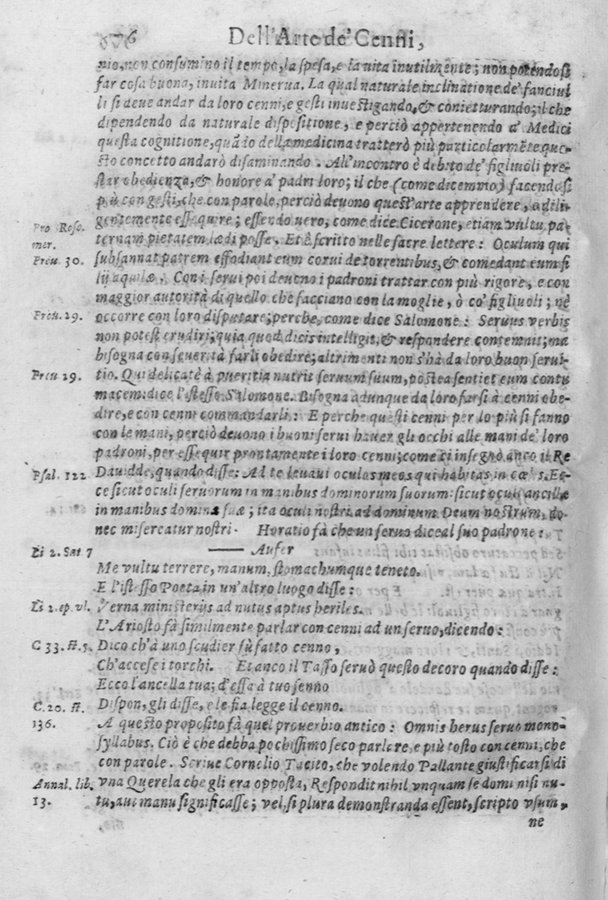 676 Dell'Arte de' Cenni,
nio, non consumino il tempo, la spesa, e la vita inutilmente; non potendosi
far cosa buona, inuita Minerua. La qual naturale inclinatione de' fanciul
li si deue andar da loro cenni, e gesti inuestigando, & conietturando; il che
dipendendo da naturale dispositione, e perciò appertenendo a' Medici
questa cognitione, quãdo della medicina tratterò più particolarmẽte que-
sto concetto andarò disaminando. All'incontro è debito de' figliuoli pre-
star obedienza, & honore a' padri loro; il che (come dicemmo) facendosi
più con gesti, che con parole, perciò deuono quest'arte apprendere, a dili-
gentemente essequire; essendo uero, come dice Cicerone, etiam vultu pa-
Pro Rosc.
mer.
ternam pietatem lædi posse. Et è scritto nelle sacre lettere: Oculum qui
Prou. 30.
subsannat patrem effodiant eum corui de torrentibus, & comedant eum fi
lij aquilæ. Con i serui poi deuono i padroni trattar con più rigore, e con
maggior autorità di quello che facciano con la moglie, ò co' figliuoli; nè
Prou. 29.
occorre con loro disputare; perche, come dice Salomone: Seruus verbis
non potest erudiri; quia quod dicis intelligit, & respondere contemnit; ma
bisogna con seuerità farli obedire; altrimenti non s'hà da loro buon serui-
Prou 29.
tio. Qui delicatè à pueritia nutrit seruum suum, postea sentiet eum contu
macem: dice l'istesso Salomone. Bisogna adunque da loro farsi à cenni obe-
dire, e con cenni commandarli: E perche questi cenni per lo più si fanno
con le mani, perciò deuono i buoni serui hauer gli occhi alle mani de' loro
padroni, per essequir prontamente i loro cenni; come ci insegnò anco il Re
Psal. 122
Dauidde, quando disse: Ad te leuaui oculos meos qui habitas in cœlis. Ec-
ce sicut oculi seruorum in manibus dominorum suorum: sicut oculi ancillæ
in manibus dominæ suæ; ita oculi nostri ad dominum Deum nostrum, do-
nec misereatur nostri. Horatio fà che un seruo dice al suo padrone:
Li 2. Sat 7
—— Aufer
Me vultu terrere, manum, stomachumque teneto.
E l'istesso Poeta in un'altro luogo disse:
Li 2. ep. vl.
Verna ministerijs ad nutus aptus heriles.
L'Ariosto fà similmente parlar con cenni ad un seruo, dicendo:
C 33. st. 5.
Dico ch'à uno scudier fù fatto cenno,
Ch'accese i torchi. Et anco il Tasso seruò questo decoro quando disse:
Ecco l'ancella tua; d'essa à tuo senno
C. 20. st.
136.
Dispon, gli disse, e le fia legge il cenno.
A questo proposito fà quel prouerbio antico: Omnis herus seruo mono-
syllabus. Ciò è che debba pochissimo seco parlare, e più tosto con cenni, che
con parole. Scriue Cornelio Tacito, che volendo Pallante giustificarsi di
Annal. lib.
13.
vna Querela che gli era opposta, Respondit nihil vnquam se domi nisi nu-
tu, aut manu significasse; vel, si plura demonstranda essent, scripto vsum,
ne